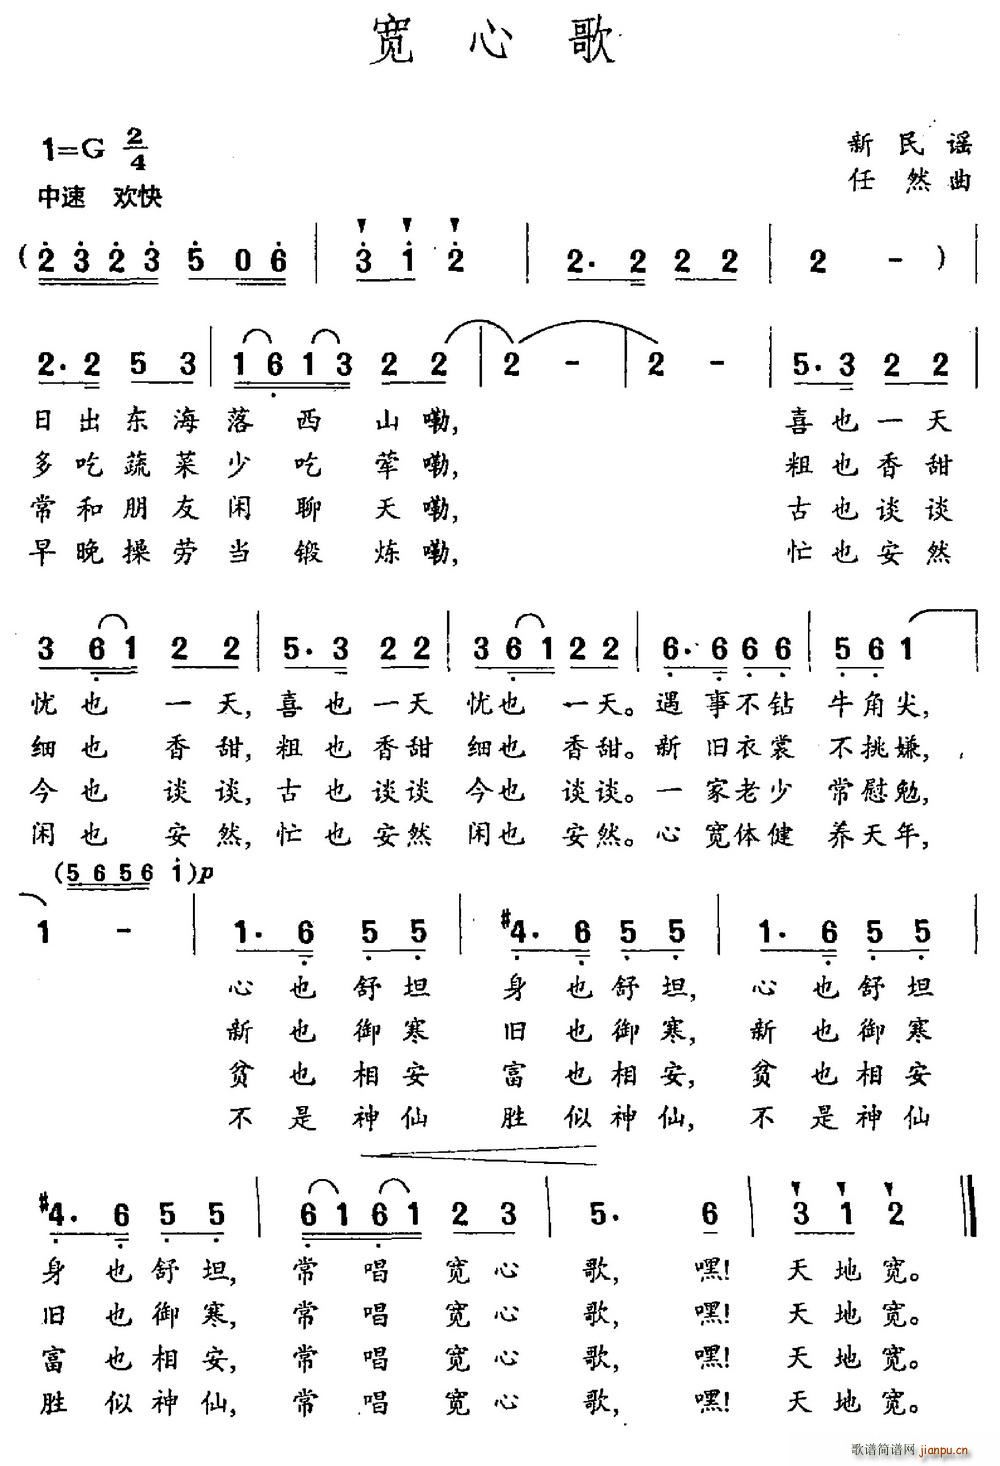 宽心歌
1=G 2/4
新民谣
中速 欢快
任然曲
(2323 506 | 312 | 2. 2 22 | 2 - )
2. 2 53 | 1613 22 | 2 - | 2 - | 5. 3 22 |
日出东海落西山嘞, 喜也一天
多吃蔬菜少吃荤嘞, 粗也香甜
常和朋友闲聊天嘞, 古也谈谈
早晚操劳当锻炼嘞, 忙也安然
361 22 | 5. 3 22 | 361 22 | 6. 6 66 | 56 1 |
忧也一天, 喜也一天 忧也一天。遇事不钻牛角尖,
细也香甜, 粗也香甜 细也香甜。新旧衣裳不挑嫌,
今也谈谈, 古也谈谈 今也谈谈。一家老少常慰勉,
闲也安然, 忙也安然 闲也安然。心宽体健养天年,
(5656 1)p
1 - | 1. 6 55 | #4. 6 55 | 1. 6 55 |
心也舒坦 身也舒坦, 心也舒坦
新也御寒 旧也御寒, 新也御寒
贫也相安 富也相安, 贫也相安
不是神仙 胜似神仙, 不是神仙
#4. 6 55 | 6161 23 | 5. 6 | 312 ‖
身也舒坦, 常唱宽心歌, 嘿! 天地宽。
旧也御寒, 常唱宽心歌, 嘿! 天地宽。
富也相安, 常唱宽心歌, 嘿! 天地宽。
胜似神仙, 常唱宽心歌, 嘿! 天地宽。
歌谱简谱网 jianpu.cn